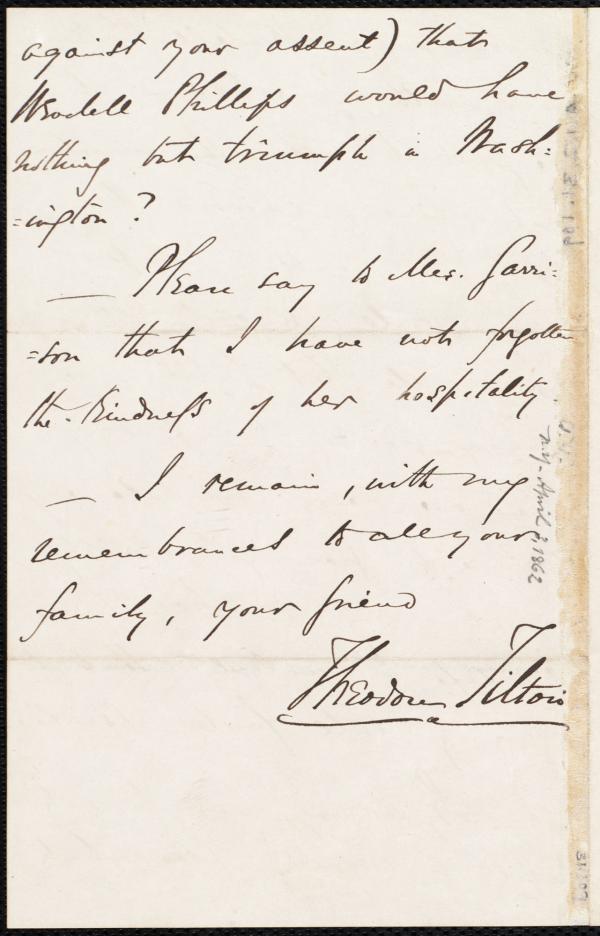 against your assent) that
Wendell Phillips would have
nothing but triumph in Wash=
=ington ?
— Please say to Mrs. Garri=
=son that I have not forgotten
the kindness of her hospitality.
— I remain, with my
remembrances to all your
family, your friend
Theodore Tilton
N.Y. April 3, 1862